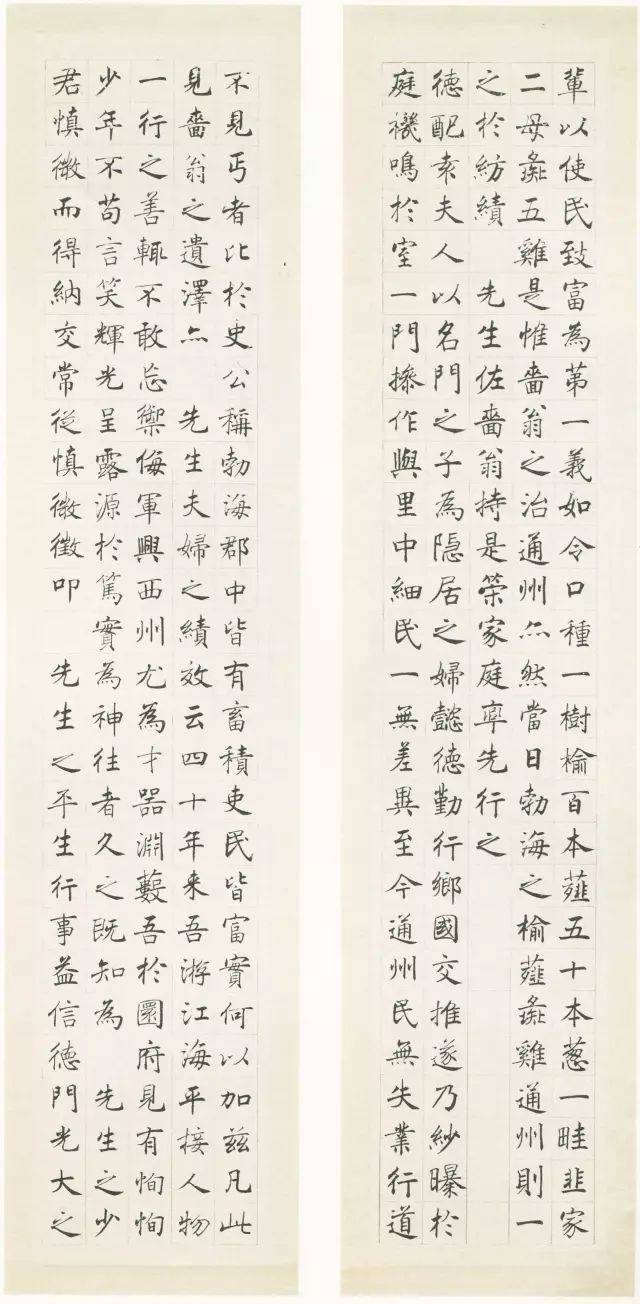 輩以使民致富為第一義如令口種一樹榆百本薤五十本蔥一畦韭家
二母彘五雞是惟嗇翁之治通州亦然當日勃海之榆薤彘雞通州則一
之於紡績 先生佐嗇翁持是榮家庭率先行之
德配袁夫人以名門之子為隱居之婦懿德勤行鄉國交推遂乃紗曝於
庭機鳴於室一門操作與里中細民一無差異至今通州民無失業行道
不見丐者比於史公稱勃海郡中皆有畜積吏民皆富實何以加茲凡此
見嗇翁之遺澤亦 先生夫婦之績效云四十年來吾游江海平接人物
一行之善輒不敢忘禦侮軍興西州尤為才器淵藪吾於園府見有恂恂
少年不苟言笑輝光呈露源於篤實為神往者久之既知為 先生之少
君慎微而得納交常從慎微徵叩 先生之平生行事益信德門光大之